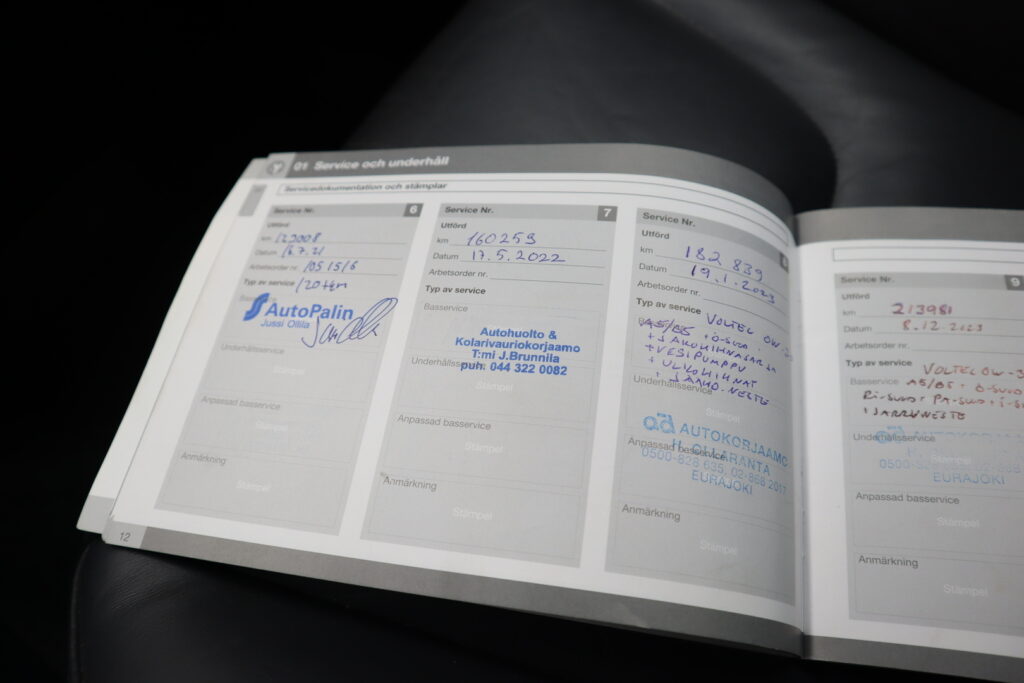 01 Service och underhåll
Servicedokumentation och stämplar
Service Nr. 6
Utförd
km 129008
Datum 16.7.21
Arbetsorder nr. 10515/6
Typ av service /120tkm
AutoPalin
Jussi Ollila
Underhållsservice
Stämpel
Anpassad basservice
Stämpel
Anmärkning
Stämpel
12
Service Nr. 7
Utförd
km 160259
Datum 17.5.2022
Arbetsorder nr.
Typ av service
Basservice
Autohuolto &
Kolarivauriokorjaamo
T:mi J.Brunnila
puh. 044 322 0082
Underhållsservice
Stämpel
Anpassad basservice
Stämpel
Anmärkning
Stämpel
Service Nr. 8
Utförd
km 182 839
Datum 19.1.2023
Arbetsorder nr.
Typ av service VOLTEL 0W-
A5/B5 + Ö-SUOD.
+ JAKOHIHNASARJA
+ VESIPUMPPU
+ ULKOHIHNAT
+ JÄÄHD.NESTE
Underhållsservice
Stämpel
AUTOKORJAAMO
Anpassad basservice
H. OLLARANTA
0500-828 635, 02-868 2017
EURAJOKI
Anmärkning
Stämpel
Service Nr. 9
Utförd
km 213981
Datum 8.12.2023
Arbetsorder nr.
Typ av service VOLTEL 0W-
Basservice A5/B5 + Ö-SUOD
RI-SUOD + PA-SUOD +
+ JARRUNESTE
Underhållsservice
AUTOKORJAAMO
Stämpel
0500-828 635, 02-868
EURAJOKI
Anpassad basservice
Stämpel
Anmärkning
Stämpel